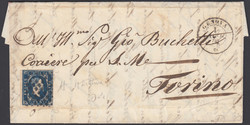 GENOVA
All' Ill.mo Sig. Gio. Buchetti
Corriere per S. M.
Torino